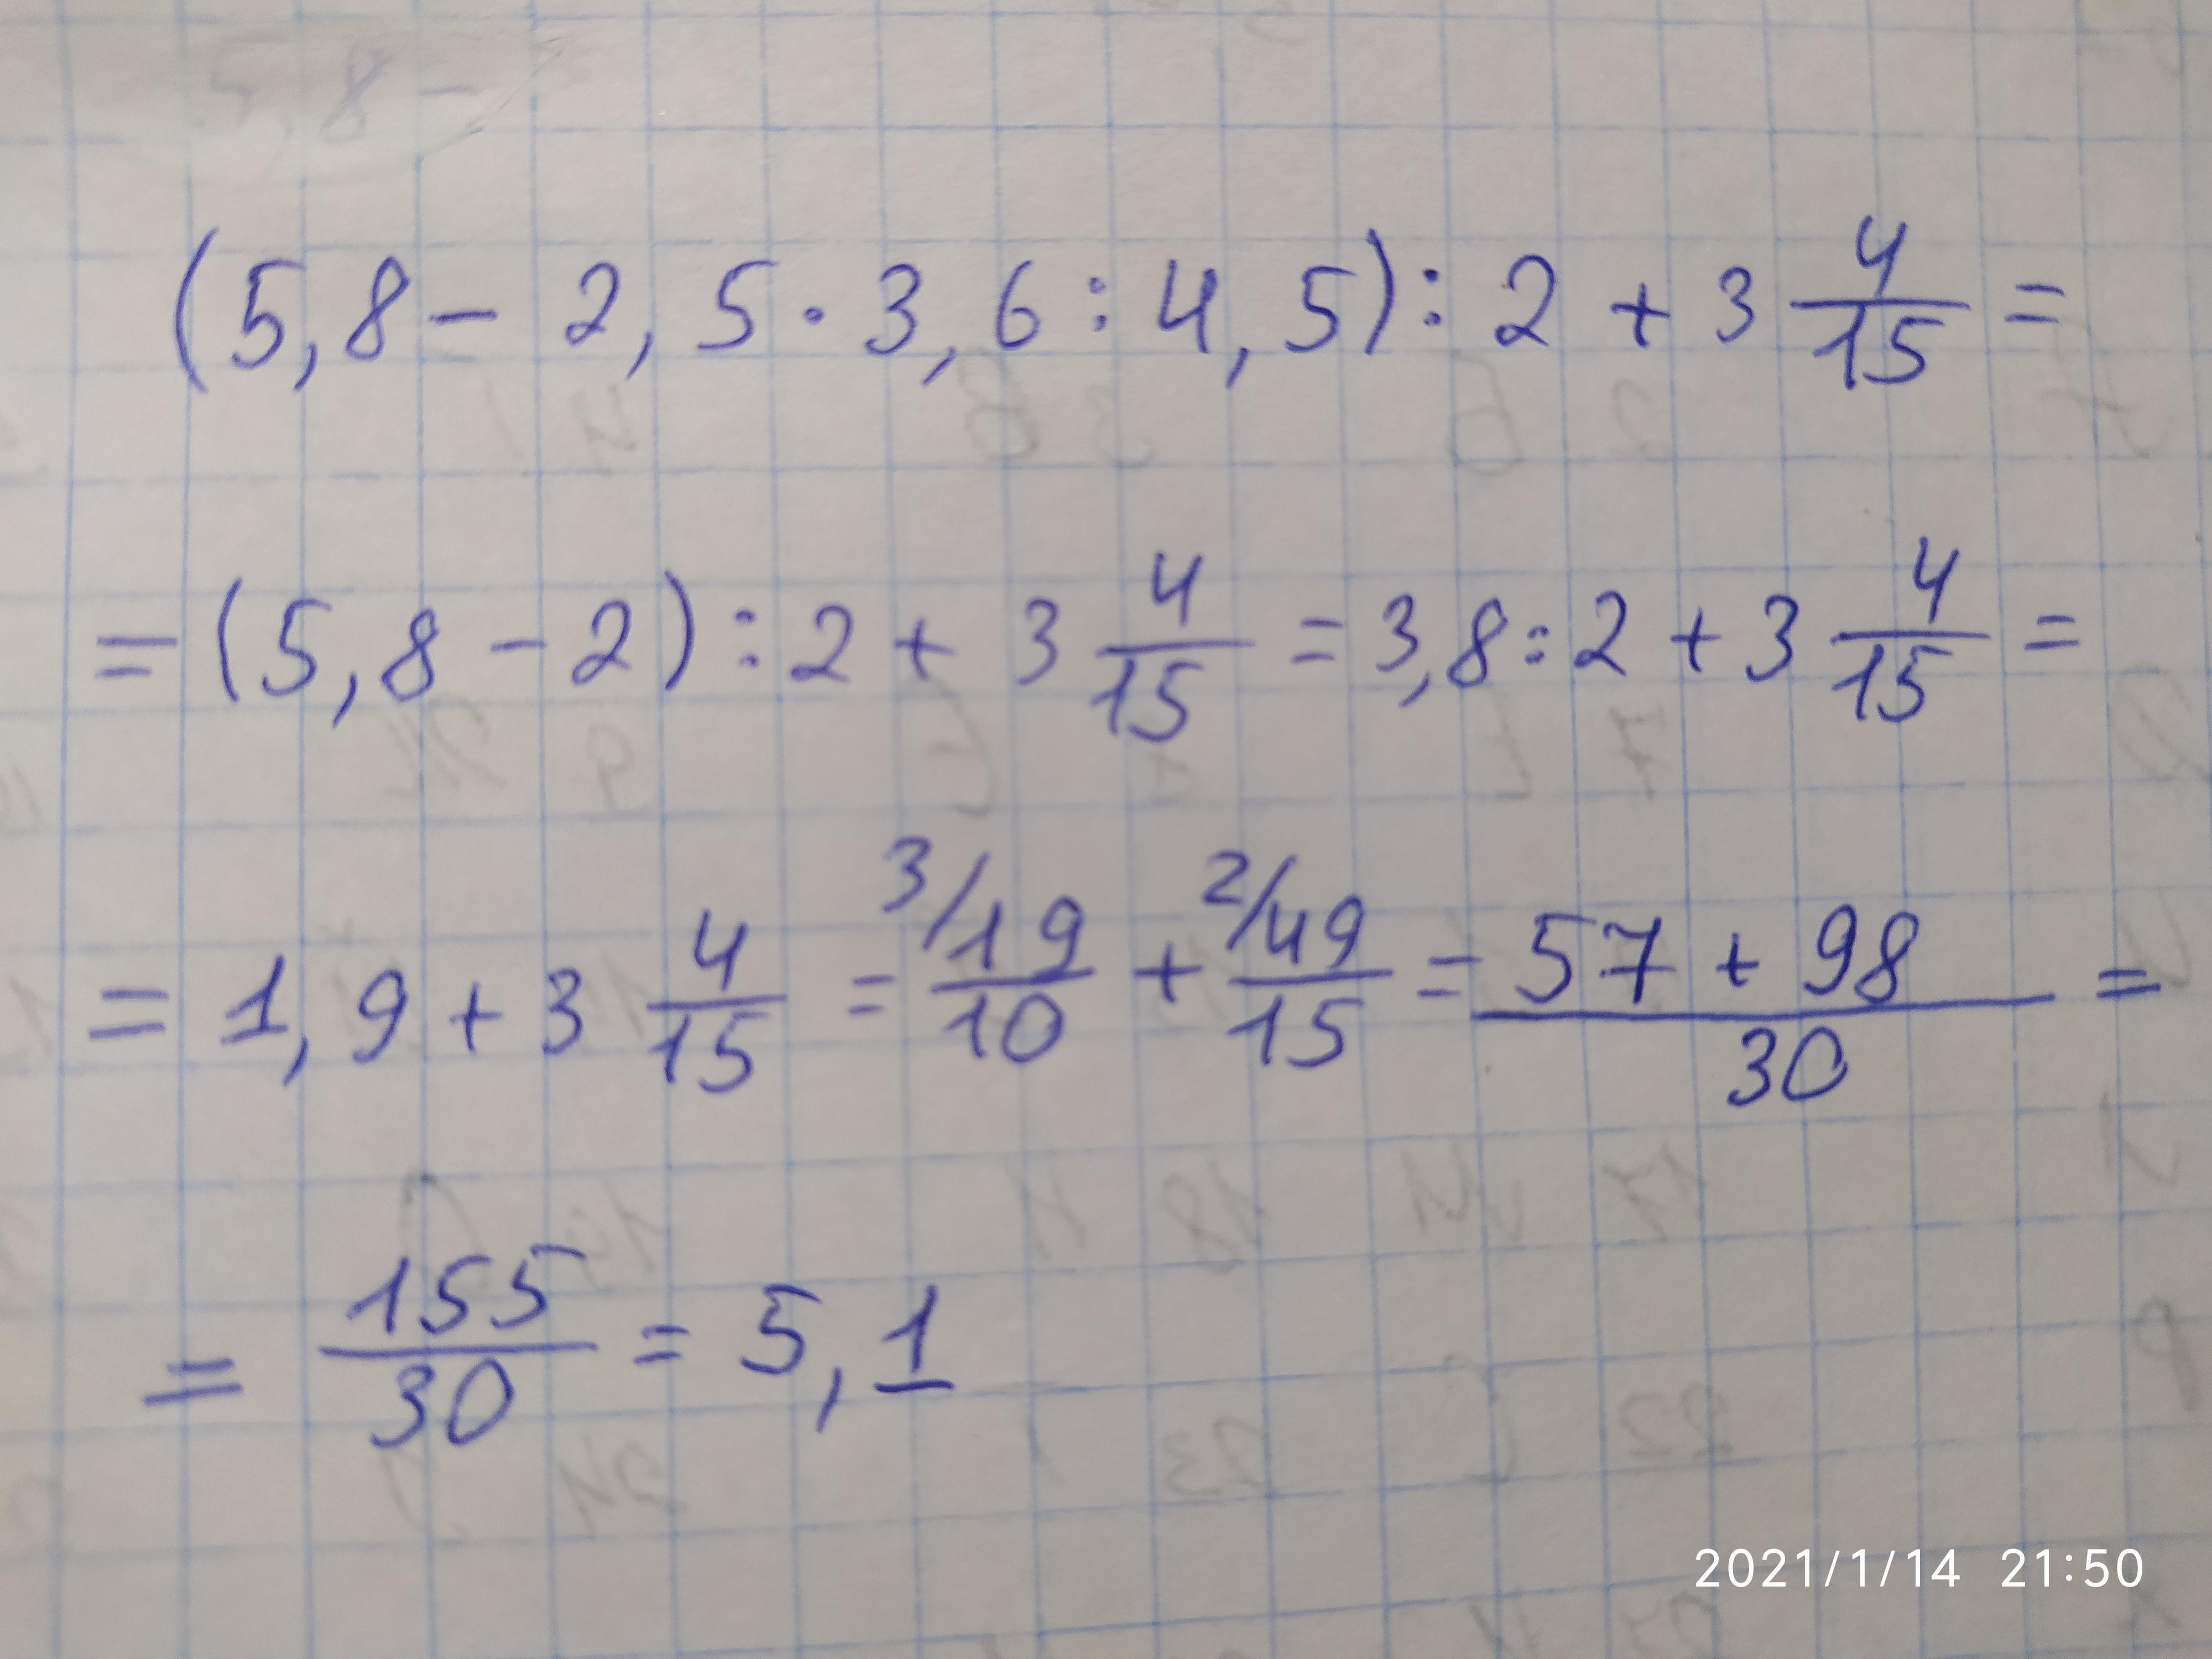 (5,8 - 2,5 · 3,6 : 4,5) : 2 + 3 4/15 =
= (5,8 - 2) : 2 + 3 4/15 = 3,8 : 2 + 3 4/15 =
= 1,9 + 3 4/15 = 3/ 19/10 + 2/ 49/15 = (57 + 98)/30 =
= 155/30 = 5,1
2021/1/14 21:50